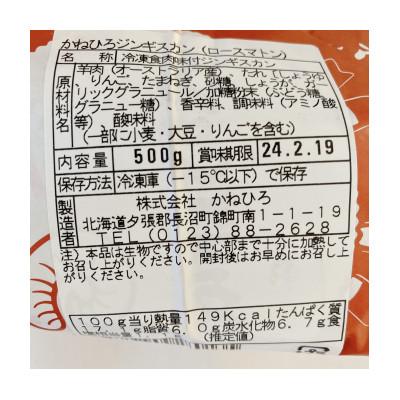 かねひろジンギスカン (ロースマトン)
名 称 冷凍食肉味付ジンギスカン
原材料名
羊肉 (オーストラリア産)、たれ [しょうゆ
、りんご、たまねぎ、砂糖、しょうが、ガー
リックグラニュール/加糖粉末 (ぶどう糖、
グラニュー糖)・香辛料、調味料 (アミノ酸
等) 酸味料
(一部に小麦・大豆・りんごを含む)
内容量 500g 賞味期限 24.2.19
保存方法 冷凍庫 (-15℃以下) で保存
製造者
株式会社 かねひろ
北海道夕張郡長沼町錦町南1-1-19
TEL (0123) 88-2628
注) 本品は生物ですので中心部まで十分に加熱して
お召し上がりください。開封後はお早めにお召し上
がりください。
100g当り熱量149Kcalたんぱく質
脂質6.0g炭水化物6.7g食
(推定値)